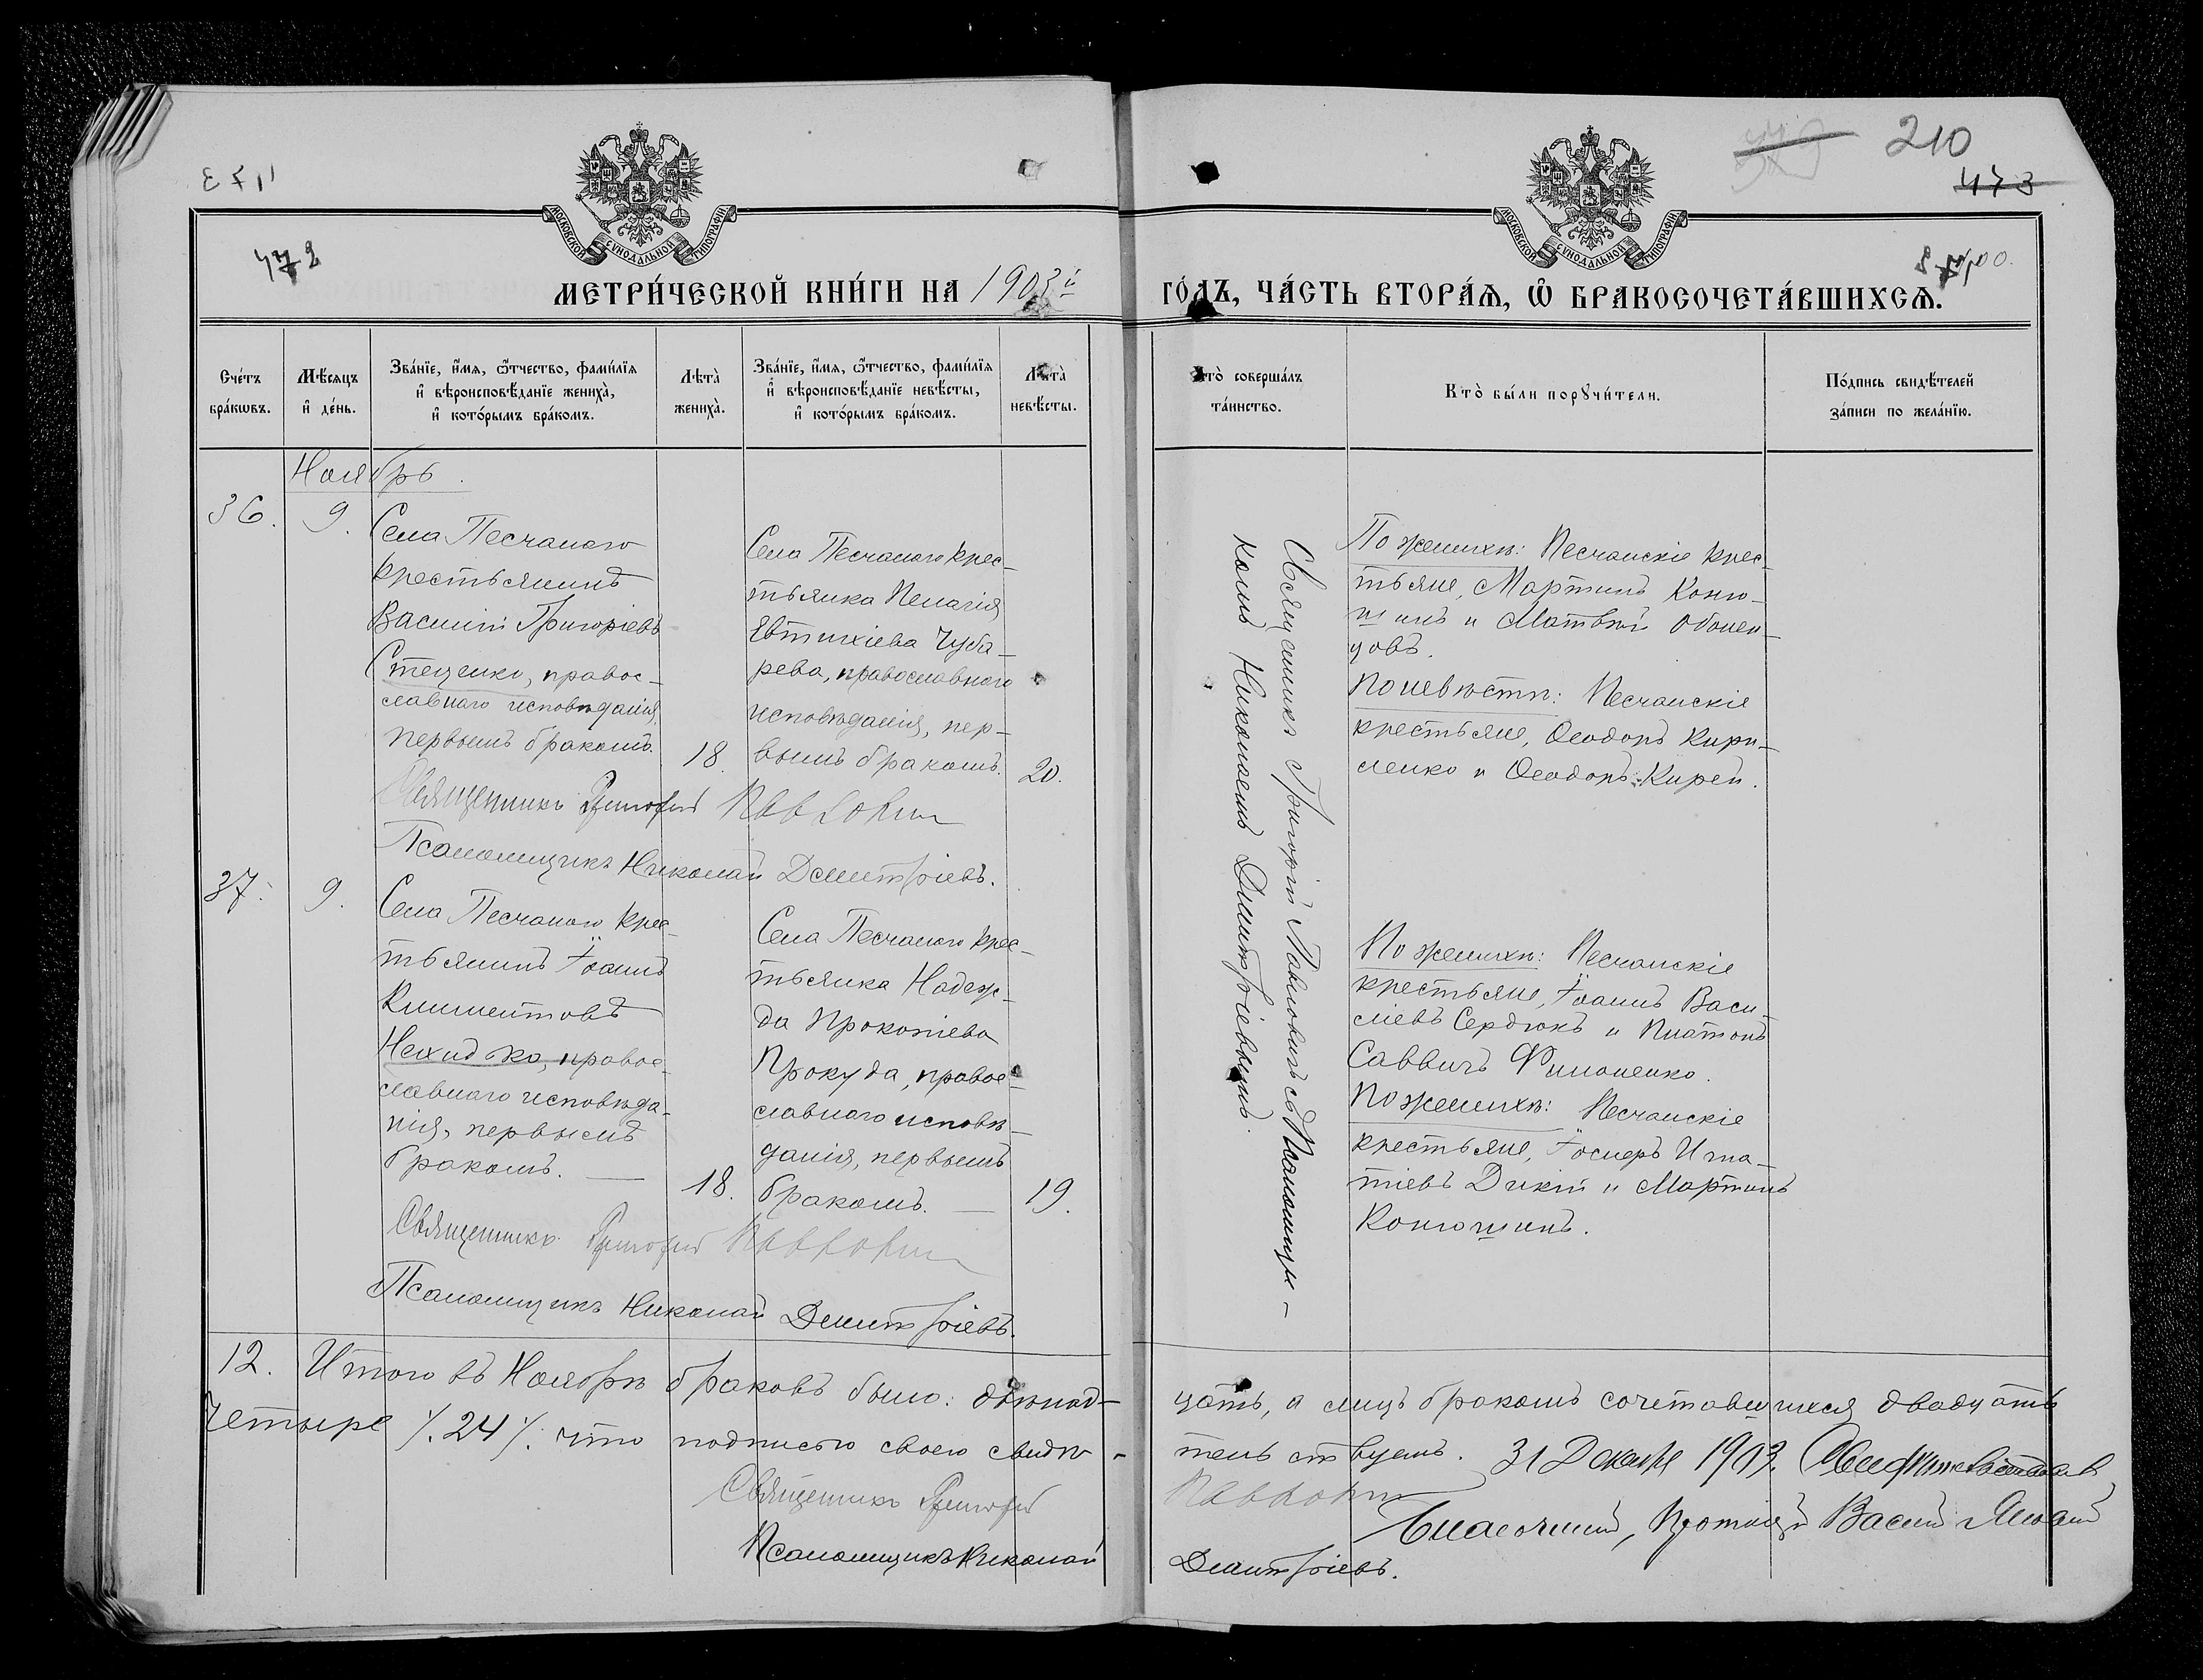 210
473
472
МОСКОВСКОЙ СУНОДАЛЬНОЙ ТИПОГРАФІИ
МОСКОВСКОЙ СУНОДАЛЬНОЙ ТИПОГРАФІИ
МЕТРИ́ЧЕСКОЙ КНИ́ГИ НА 1903й
ГО́ДЪ, ЧА́СТЬ ВТОРА́Ѧ, Ѽ БРАКОСОЧЕТА́ВШИХСѦ.
Сче́тъ бра́кѡвъ.
Мѣ́сяцъ и҆ де́нь.
Зва́нїе, и҆́мѧ, ѻ҆́тчество, фами́лїѧ
и҆ вѣроисповѣ́данїе жениха̀,
и҆ кото́рымъ бра́комъ.
Лѣта̀ жениха̀.
Зва́нїе, и҆́мѧ, ѻ҆́тчество, фами́лїѧ
и҆ вѣроисповѣ́данїе невѣ́сты,
и҆ кото́рымъ бра́комъ.
Лѣта̀ невѣ́сты.
Кто̀ соверша́лъ та́инство.
Кто̀ бы́ли порꙋчи́тели.
По́дпись свидѣ́телей
за́писи по жела́нїю.
Ноябрь.
36.
9.
Села Песчаного
крестьянинъ
Василій Григоріевъ
Стеценко, правос-
славнаго исповѣданія,
первымъ бракомъ.
18.
Села Песчаного крес-
тьянка Пелагія
Евтихіева Чуба-
рева, православнаго
исповѣданія, пер-
вымъ бракомъ.
20.
Священникъ Григорій Павловичъ съ Псаломщи-
комъ Николаемъ Димитріевымъ.
По женихѣ: Песчанскіе крес-
тьяне, Мартинъ Коню-
шинъ и Матвѣй Оболен-
цовъ.
По невѣстѣ: Песчанскіе
крестьяне, Ѳеодоръ Кири-
ленко и Ѳеодоръ Кирей.
Священникъ Григорій Павловичъ
Псаломщикъ Николай Димитріевъ.
37.
9.
Села Песчаного крес-
тьянинъ Іоаннъ
Климентовъ
Нехидько, правос-
славнаго исповѣда-
нія, первымъ
бракомъ.
18.
Села Песчаного крес-
тьянка Надеж-
да Прокопіева
Прокуда, правос-
славнаго исповѣ-
данія, первымъ
бракомъ.
19.
По женихѣ: Песчанскіе
крестьяне, Іоаннъ Васи-
ліевъ Сердюкъ и Платонъ
Саввичъ Филоненко.
По женихѣ: Песчанскіе
крестьяне, Іосифъ Игна-
тіевъ Дикій и Мартинъ
Конюшинъ.
Священникъ Григорій Павловичъ
Псаломщикъ Николай Димитріевъ.
12. Итого въ Ноябрѣ браковъ было: двѣнад-
цать, а лицъ бракомъ сочетавшихся двадцать
четыре /. 24 /. что подписью своею свидѣ-
тельствуемъ. 31 Декабря 1903.
Священникъ Григорій
Павловичъ
Благочинный, Протоіерей Василій
Псаломщикъ Николай
Димитріевъ.